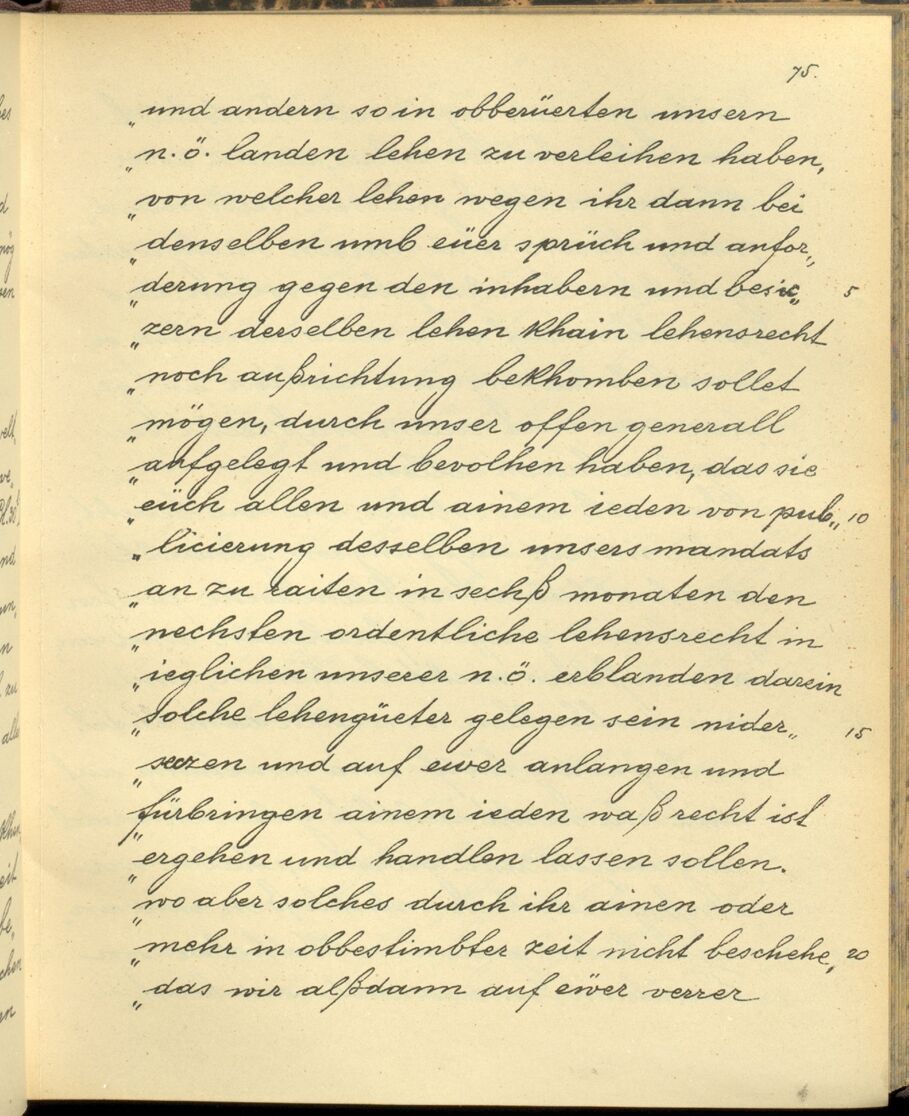 75.
„und andern so in obberüerten unsern
„n. ö. landen lehen zu verleihen haben,
„von welcher lehen wegen ihr dann bei
„denselben umb eüer sprüch und anfor„
„derung gegen den inhabern und besic„ 5
„zern derselben lehen khain lehensrecht
„noch außrichtung bekhomben sollet
„mögen, durch unser offen generall
„aufgelegt und bevolhen haben, das sie
„eüch allen und ainem ieden von pub„ 10
„licierung desselben unsers mandats
„an zu raiten in sechß monaten den
„nechsten ordentliche lehensrecht in
„ieglichen unserer n. ö. erblanden darein
„solche lehengüeter gelegen sein nider„ 15
„seczen und auf ewer anlangen und
„fürbringen ainem ieden waß recht ist
„ergehen und handlen lassen sollen.
„wo aber solches durch ihr ainen oder
„mehr in obbestimbter zeit nicht beschehe, 20
„das wir alßdann auf ëwer verrer